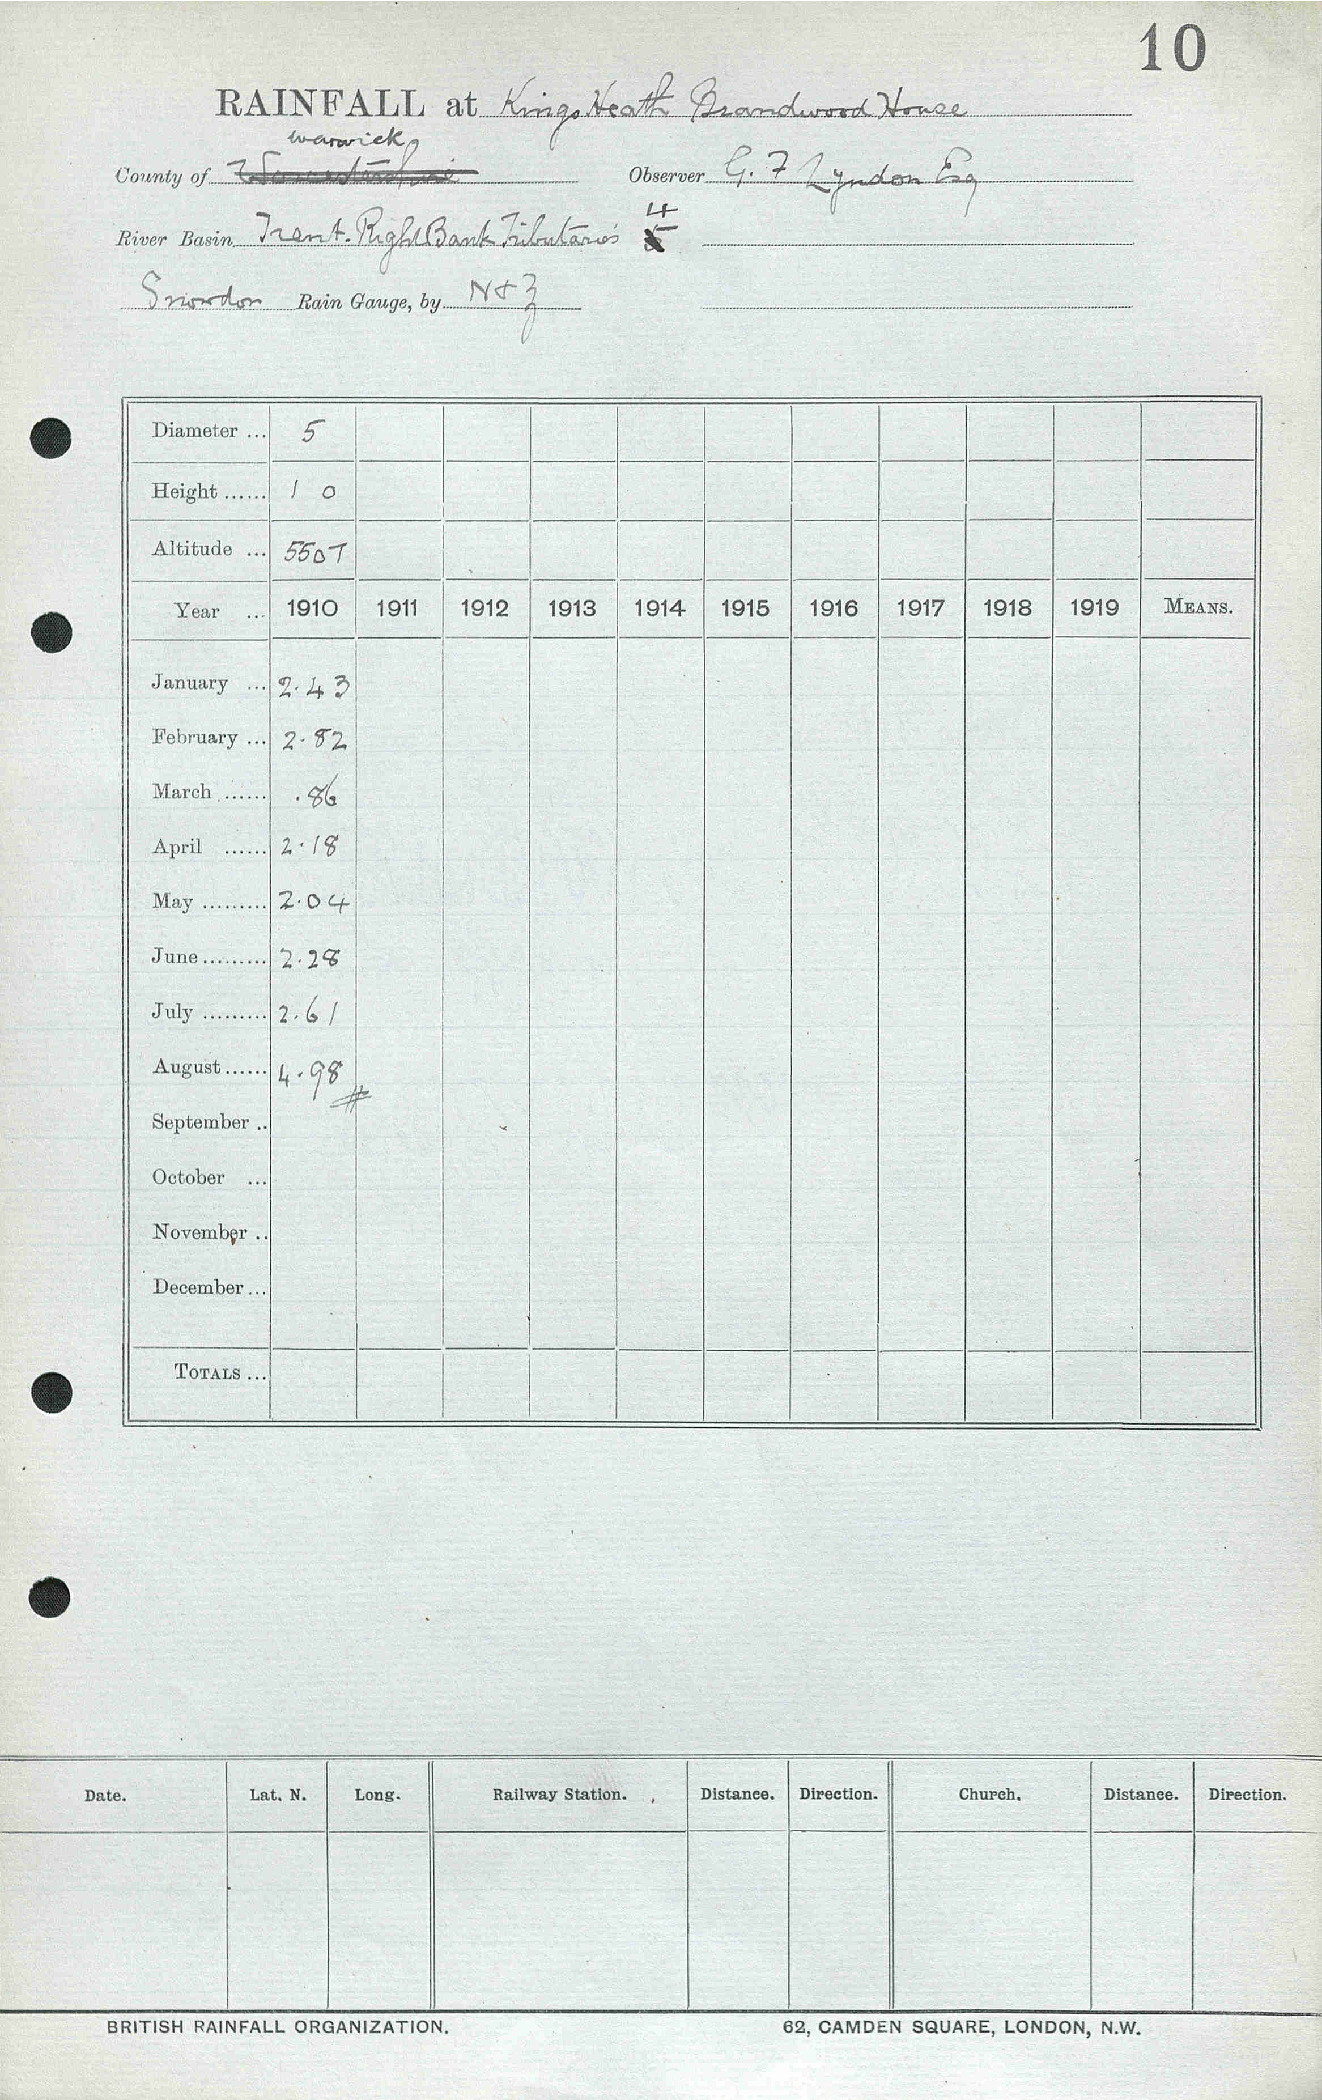 10
RAINFALL at Kings Heath Brandwood House
Warwick
County of Worcestershire Observer G. F Lyndon Esq
4
River Basin Trent. Right Bank Tributaries 5
Snowdon Rain Gauge, by N & Z
Diameter ... 5
Height ...... 1 0
Altitude ... 550T
Year ... 1910 1911 1912 1913 1914 1915 1916 1917 1918 1919 MEANS.
January ... 2.43
February ... 2.82
March ...... .86
April ...... 2.18
May ......... 2.04
June ......... 2.28
July ......... 2.61
August ...... 4.98 #
September ..
October ...
November ..
December ...
TOTALS ...
Date. Lat. N. Long. Railway Station. Distance. Direction. Church. Distance. Direction.
BRITISH RAINFALL ORGANIZATION. 62, CAMDEN SQUARE, LONDON, N.W.